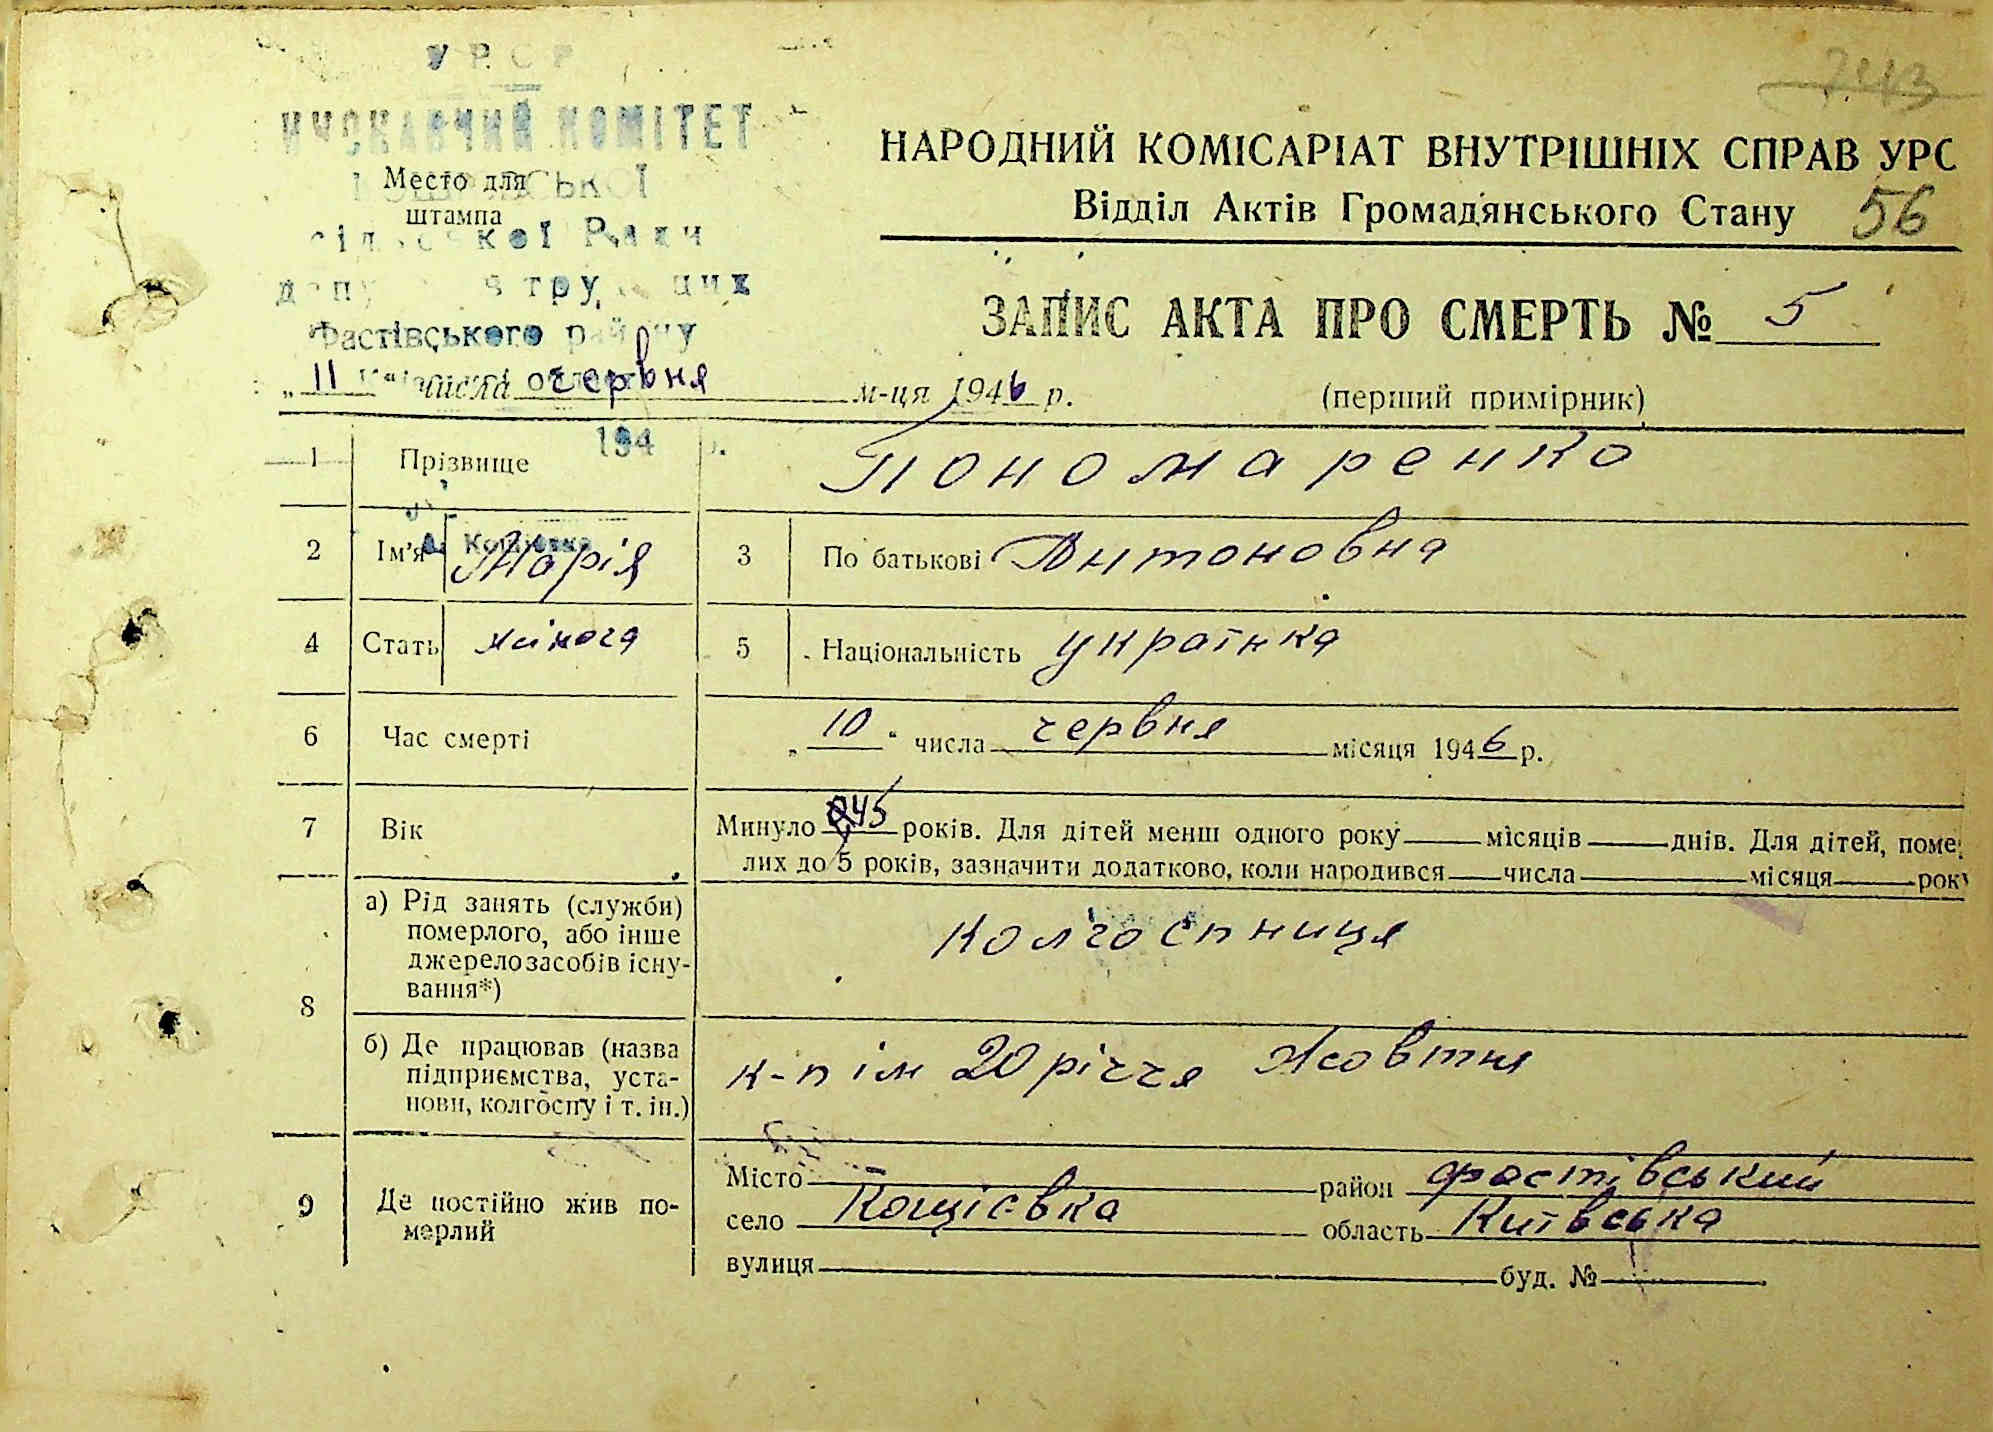 УРСР
743
КОМІТЕТ
НАРОДНИЙ КОМІСАРІАТ ВНУТРІШНІХ СПРАВ УРС
Место для
штампа
Відділ Актів Громадянського Стану 56
Ради
ЗАПИС АКТА ПРО СМЕРТЬ № 5
Фастівського району
„ 11 " числа червня м-ця 1946 р. (перший примірник)
194 р.
1 Прізвище Пономаренко
2 Ім'я Марія 3 По батькові Антоновна
4 Стать жіноча 5 Національність українка
6 Час смерті „ 10 " числа червня місяця 1946 р.
7 Вік Минуло 45 років. Для дітей менш одного року місяців днів. Для дітей, поме
лих до 5 років, зазначити додатково, коли народився числа місяця року
8 а) Рід занять (служби)
померлого, або інше
джерело засобів існу-
вання*) колгоспниця
б) Де працював (назва
підприємства, уста-
нови, колгоспу і т. ін.) к-п ім 20 річчя Жовтня
9 Де постійно жив по-
мерлий
Місто район Фастівський
село Кощієвка область Київська
вулиця буд. №